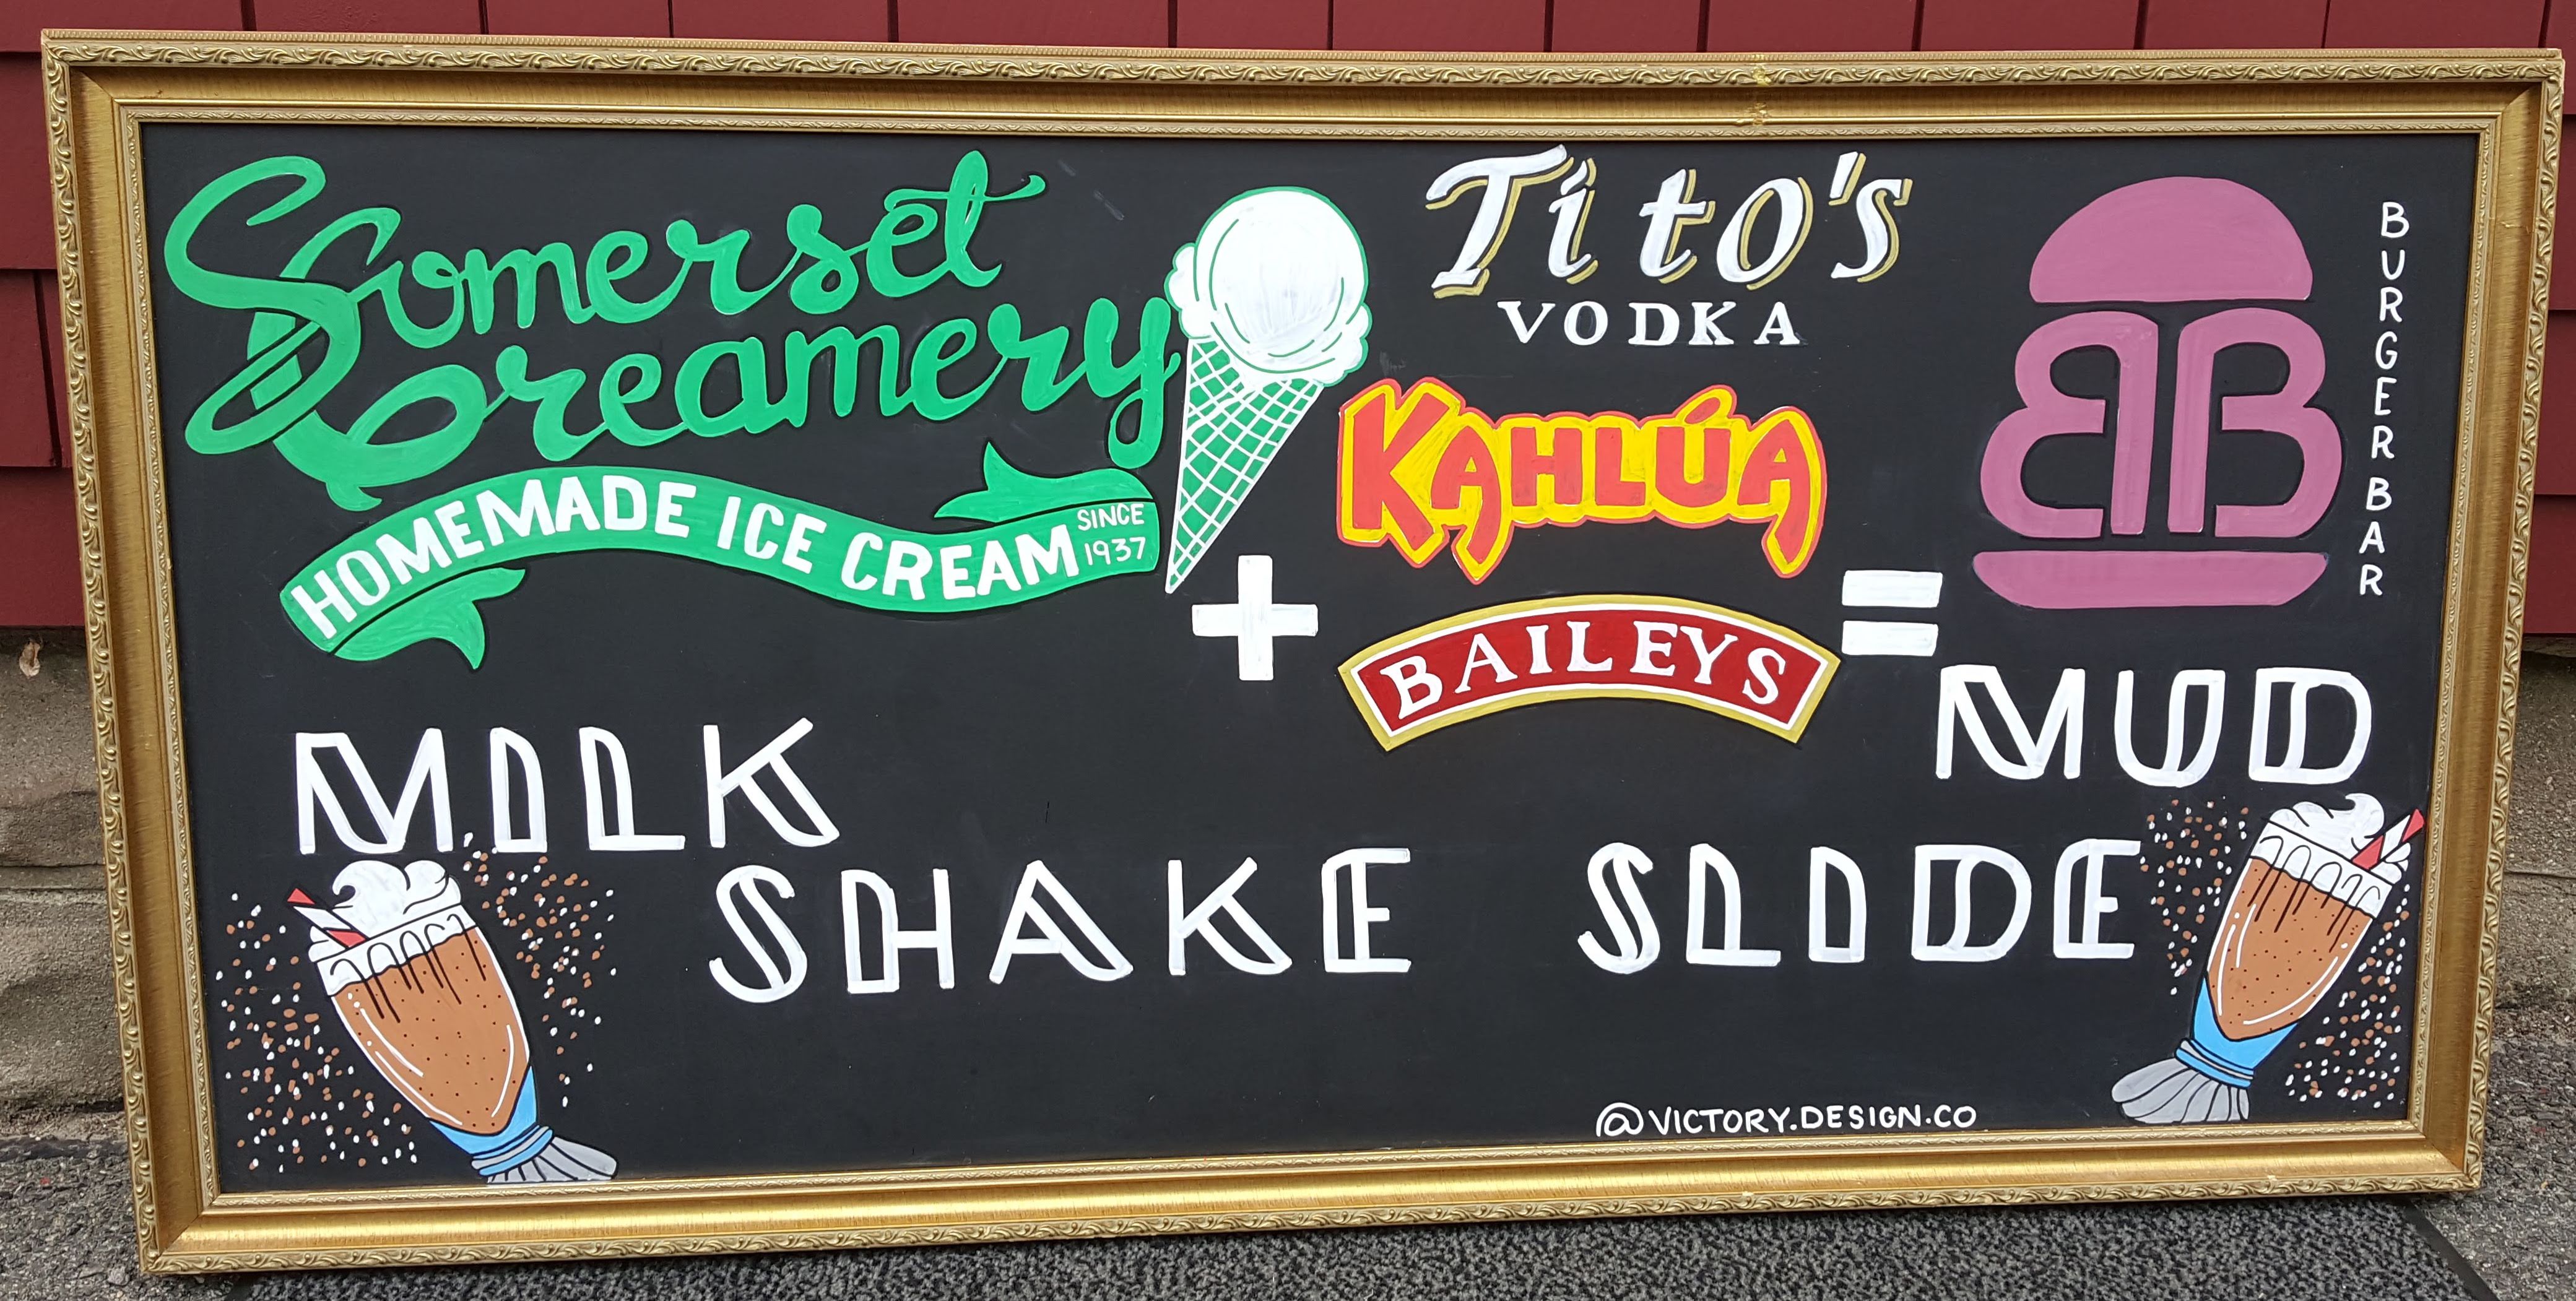 Somerset
Creamery
HOMEMADE ICE CREAM
SINCE
1937
+
Tito's
VODKA
KAHLÚA
BAILEYS
=
BB
BURGER BAR
MILK
SHAKE
MUD
SLIDE
@VICTORY.DESIGN.CO